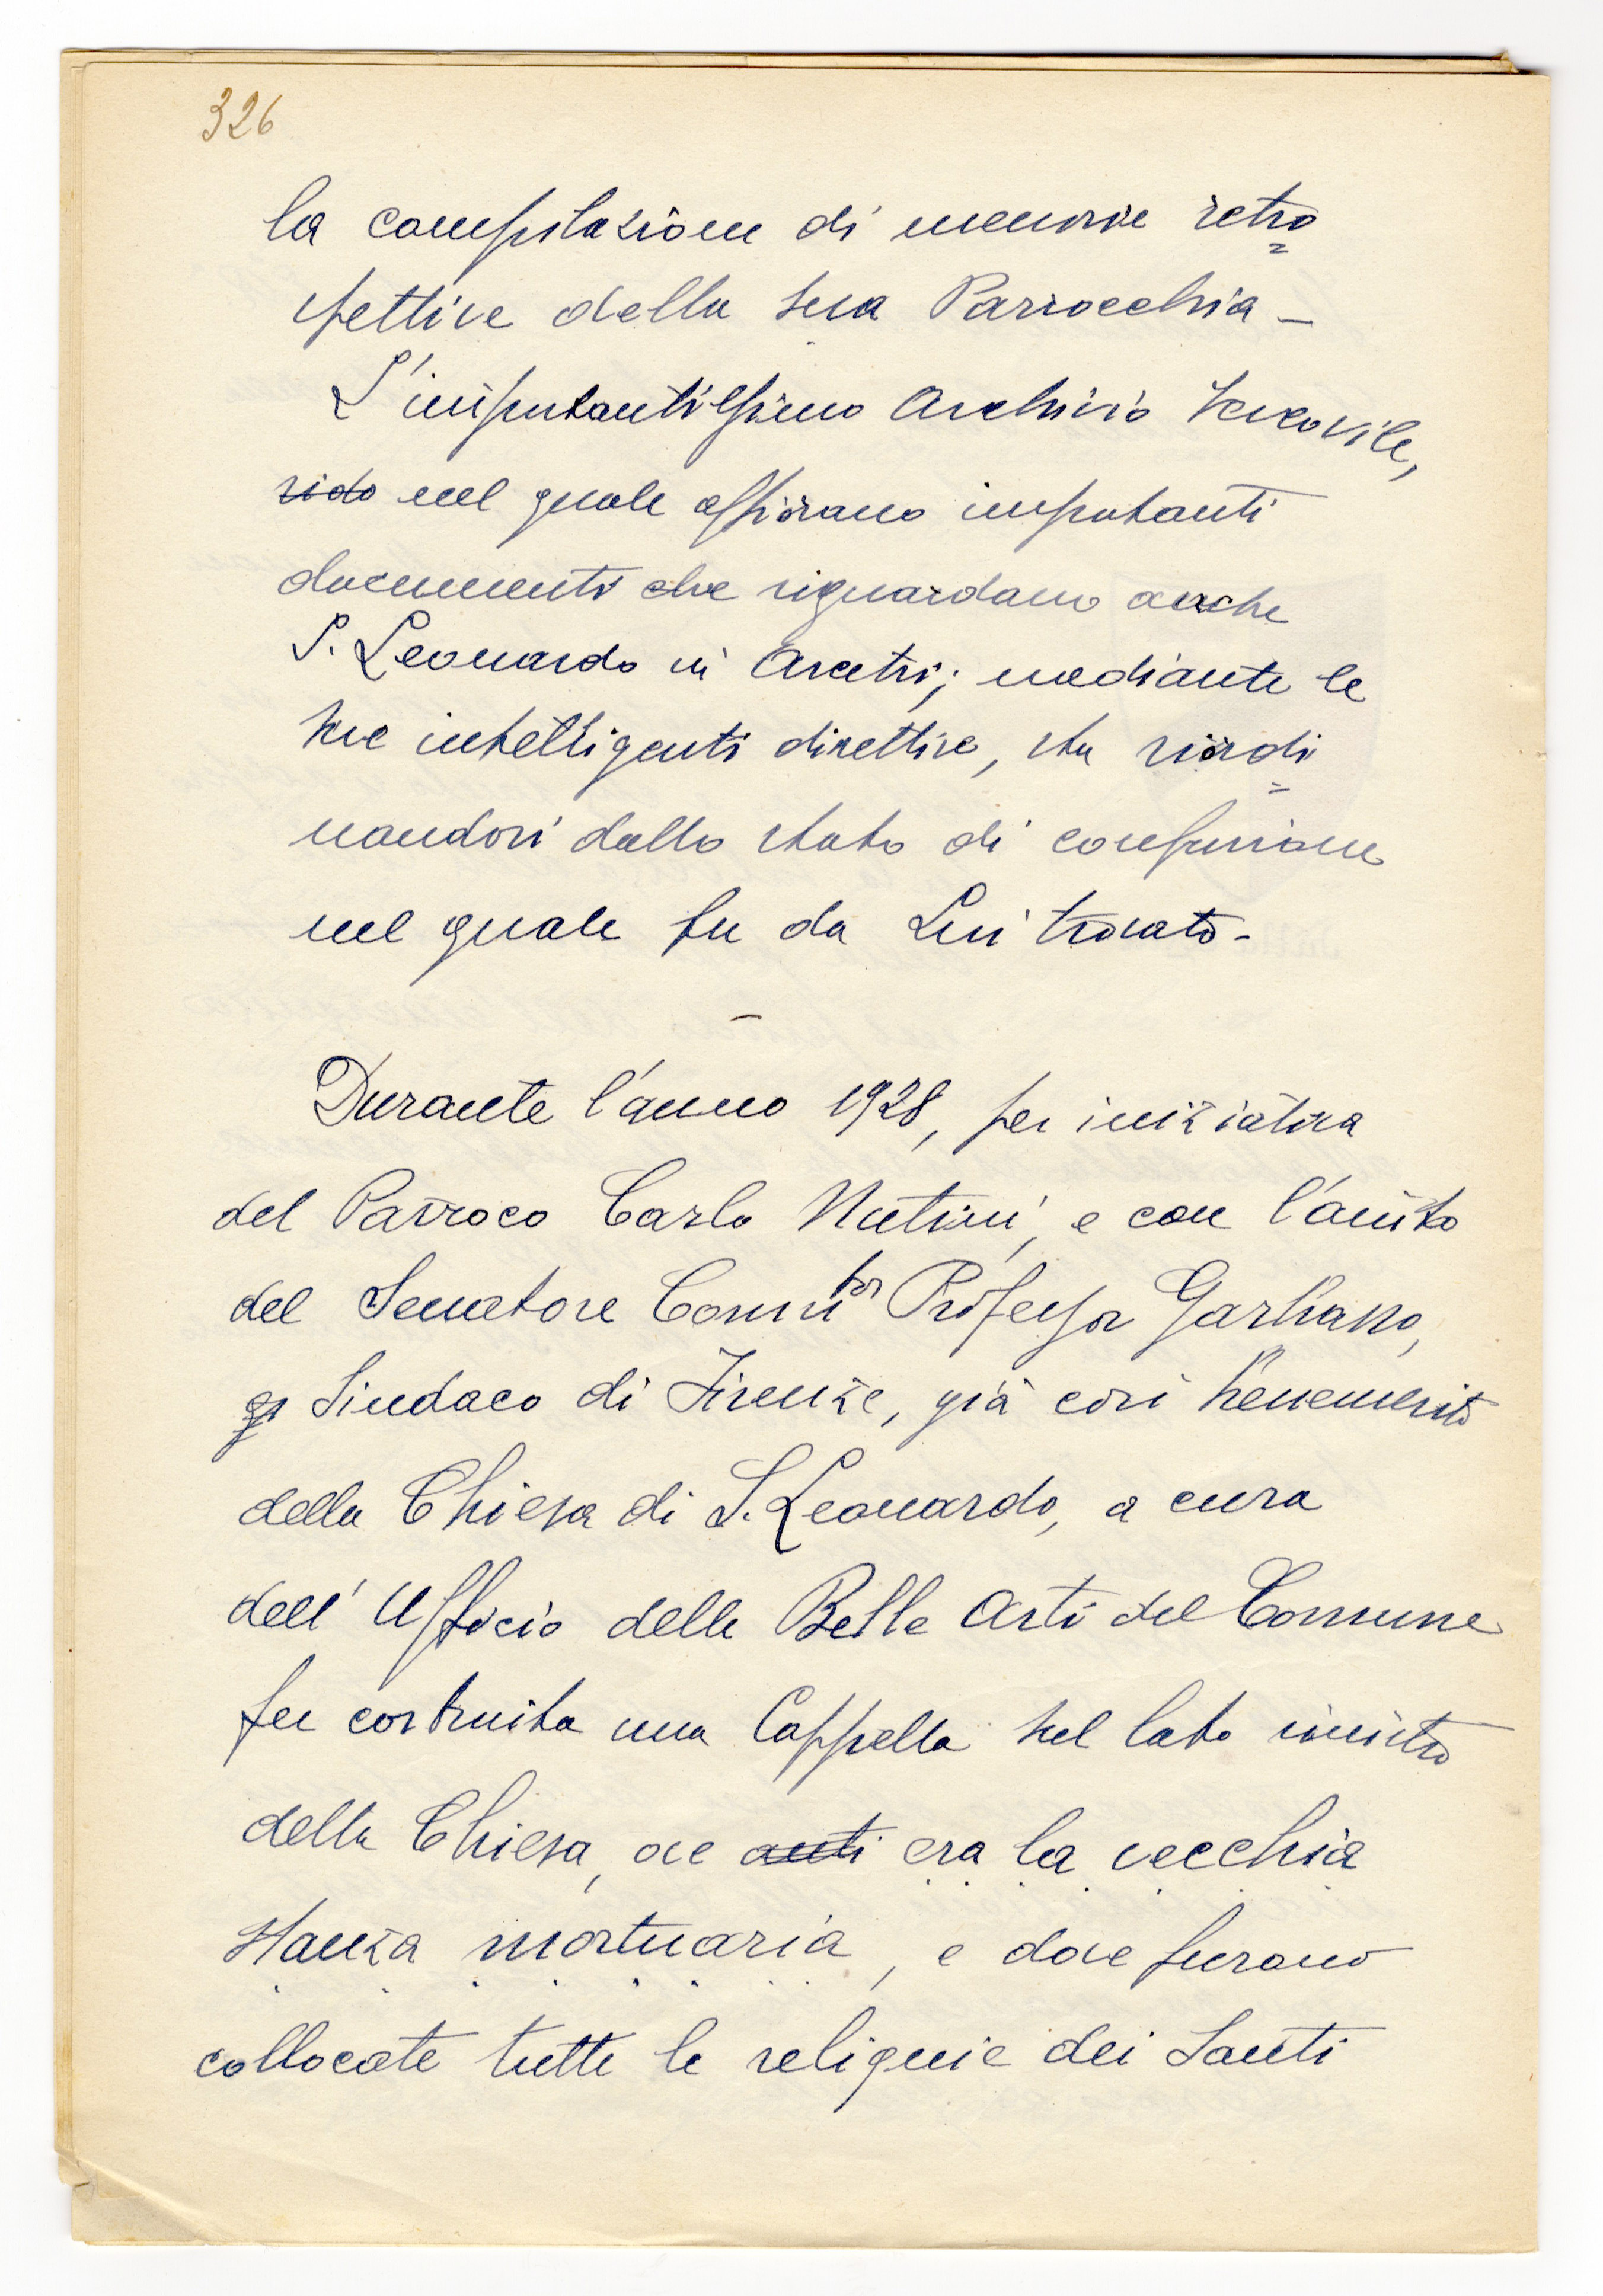 326
la compilazione di memorie retro=
spettive della sua Parrocchia –
L'importantissimo Archivio Vescovile,
rido nel quale affiorano importanti
documenti che riguardano anche
S. Leonardo in Arcetri; mediante le
sue intelligenti direttive, sta riordi=
nandosi dallo stato di confusione
nel quale fu da Lui trovato.
–
Durante l'anno 1928, per iniziativa
del Parroco Carlo Nutini, e con l'aiuto
del Senatore Comm.tor Professor Garbasso,
gi Sindaco di Firenze, già così benemerito
della Chiesa di S. Leonardo, a cura
dell'Ufficio delle Belle Arti del Comune
fu costruita una Cappella sul lato sinistro
della Chiesa, ove anti era la vecchia
stanza mortuaria, e dove furano
collocate tutte le reliquie dei Santi